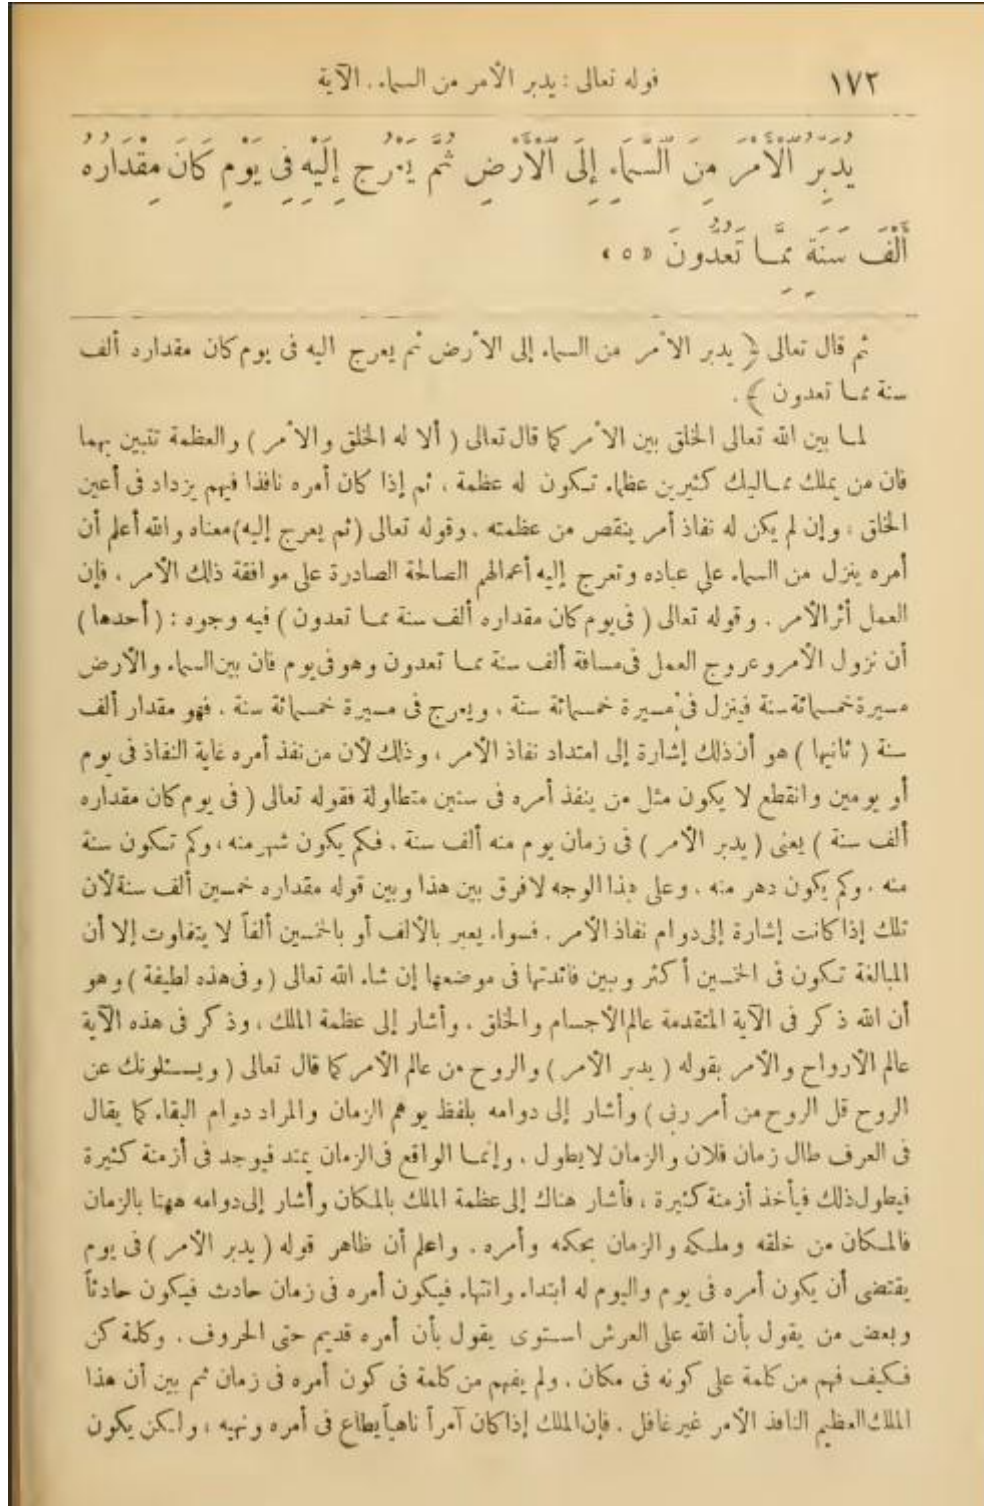 ١٧٢
قوله تعالى : يدبر الأمر من السماء . الآية
يُدَبِّرُ الْأَمْرَ مِنَ السَّمَاءِ إِلَى الْأَرْضِ ثُمَّ يَعْرُجُ إِلَيْهِ فِي يَوْمٍ كَانَ مِقْدَارُهُ
أَلْفَ سَنَةٍ مِمَّا تَعُدُّونَ «٥»
ثم قال تعالى ﴿ يدبر الأمر من السماء إلى الأرض ثم يعرج اليه فى يوم كان مقداره ألف
سنة مما تعدون ﴾ .
لما بين الله تعالى الخلق بين الأمر كما قال تعالى ( ألا له الخلق والأمر ) والعظمة تتبين بهما
فان من يملك مماليك كثيرين عظماء تكون له عظمة ، ثم إذا كان أمره نافذا فيهم يزداد فى أعين
الخلق ، وإن لم يكن له نفاذ أمر ينقص من عظمته . وقوله تعالى (ثم يعرج إليه) معناه والله أعلم أن
أمره ينزل من السماء على عباده وتعرج إليه أعمالهم الصالحة الصادرة على موافقة ذلك الأمر ، فإن
العمل أثر الأمر . وقوله تعالى ( فى يوم كان مقداره ألف سنة مما تعدون ) فيه وجوه : ( أحدها )
أن نزول الأمر وعروج العمل فى مسافة ألف سنة مما تعدون وهو فى يوم فان بين السماء والأرض
مسيرة خمسمائة سنة فينزل فى مسيرة خمسمائة سنة ، ويعرج فى مسيرة خمسمائة سنة ، فهو مقدار ألف
سنة ( ثانيها ) هو أن ذلك إشارة إلى امتداد نفاذ الأمر ، وذلك لأن من نفذ أمره غاية النفاذ فى يوم
أو يومين وانقطع لا يكون مثل من ينفذ أمره فى سنين متطاولة فقوله تعالى ( فى يوم كان مقداره
ألف سنة ) يعنى ( يدبر الأمر ) فى زمان يوم منه ألف سنة ، فكم يكون شهر منه ، وكم تكون سنة
منه ، وكم يكون دهر منه ، وعلى هذا الوجه لا فرق بين هذا وبين قوله مقداره خمسين ألف سنة لأن
تلك إذا كانت إشارة إلى دوام نفاذ الأمر ، فسواء يعبر بالألف أو بالخمسين ألفاً لا يتفاوت إلا أن
المبالغة تكون فى الخمسين أكثر وبين فائدتها فى موضعها إن شاء الله تعالى ( وفى هذه لطيفة ) وهو
أن الله ذكر فى الآية المتقدمة عالم الأجسام والخلق ، وأشار إلى عظمة الملك ، وذكر فى هذه الآية
عالم الأرواح والأمر بقوله ( يدبر الأمر ) والروح من عالم الأمر كما قال تعالى ( ويسئلونك عن
الروح قل الروح من أمر ربى ) وأشار إلى دوامه بلفظ يوهم الزمان والمراد دوام البقاء كما يقال
فى العرف طال زمان فلان والزمان لا يطول ، وإنما الواقع فى الزمان يمتد فيوجد فى أزمنة كثيرة
فيطول ذلك فيأخذ أزمنة كثيرة ، فأشار هناك إلى عظمة الملك بالمكان وأشار إلى دوامه ههنا بالزمان
فالمكان من خلقه وملكه والزمان بحكمه وأمره . واعلم أن ظاهر قوله ( يدبر الأمر ) فى يوم
يقتضى أن يكون أمره فى يوم واليوم له ابتداء وانتهاء فيكون أمره فى زمان حادث فيكون حادثاً
وبعض من يقول بأن الله على العرش استوى يقول بأن أمره قديم حتى الحروف ، وكلمة كن
فكيف فهم من كلمة على كونه فى مكان ، ولم يفهم من كلمة فى كون أمره فى زمان ثم بين أن هذا
الملك العظيم النافذ الأمر غير غافل ، فإن الملك إذا كان آمراً ناهياً يطاع فى أمره ونهيه ، ولكن يكون